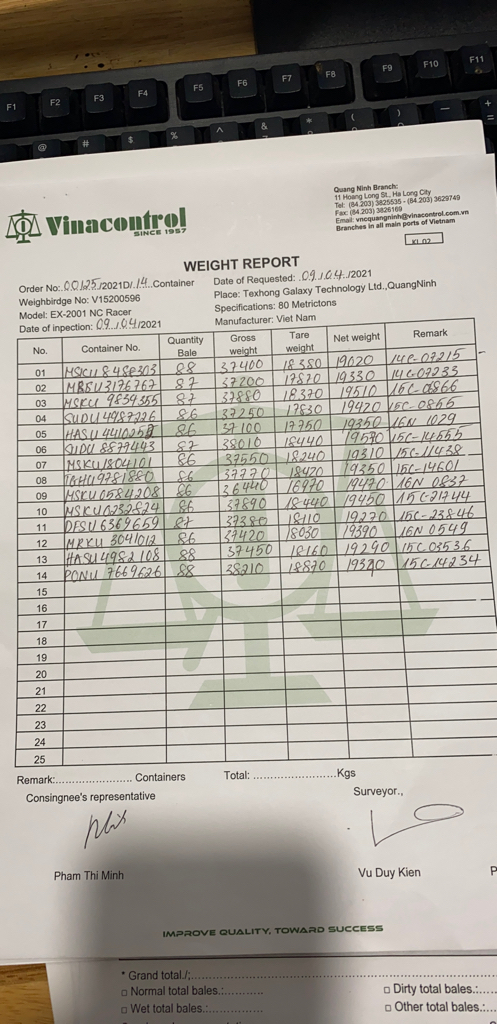 F1 F2 F3 F4 F5 F6 F7 F8 F9 F10 F11
@ # $ % ^ & * ( )
Quang Ninh Branch:
11 Hoang Long St., Ha Long City
Tel: (84.203) 3825535 - (84.203) 3629749
Fax: (84.203) 3826169
Email: vncquangninh@vinacontrol.com.vn
Branches in all main ports of Vietnam
KL 02
Vinacontrol
SINCE 1957
WEIGHT REPORT
Order No:.00125/2021D/.14..Container
Date of Requested: .09./.04./2021
Weighbirdge No: V15200596
Place: Texhong Galaxy Technology Ltd.,QuangNinh
Model: EX-2001 NC Racer
Specifications: 80 Metrictons
Date of inpection: 09./.04/2021
Manufacturer: Viet Nam
No. Container No. Quantity Bale Gross weight Tare weight Net weight Remark
01 MSKU 8488303 88 37400 18380 19020 14C-07215
02 MRSU 3176767 87 37200 17870 19330 14C-07233
03 MSKU 9834355 87 37880 18370 19510 15C-0866
04 SUDU 4987226 86 37250 17830 19420 15C-0855
05 HASU 86 37100 17750 19350 16N 1029
06 SUDU 8879443 87 38010 18440 19570 15C-14555
07 MSKU 1804101 86 37550 18240 19310 15C-11438
08 86 37770 18420 19350 15C-14601
09 MSKU 0584208 86 36440 16970 19470 16N 0837
10 MSKU 0232824 86 37890 18440 19450 15C-21744
11 DFSU 6369659 87 37380 18110 19270 15C-23846
12 MRKU 3041012 86 37420 18030 19390 16N 0549
13 HASU 4982108 88 37450 18160 19290 15C-03536
14 PONU 7669626 88 38210 18870 15C-14234
15
16
17
18
19
20
21
22
23
24
25
Remark:...................... Containers Total: ........................Kgs
Consingnee's representative Surveyor.,
Pham Thi Minh Vu Duy Kien
IMPROVE QUALITY, TOWARD SUCCESS
* Grand total./:
□ Normal total bales.: □ Dirty total bales.:
□ Wet total bales.: □ Other total bales.: